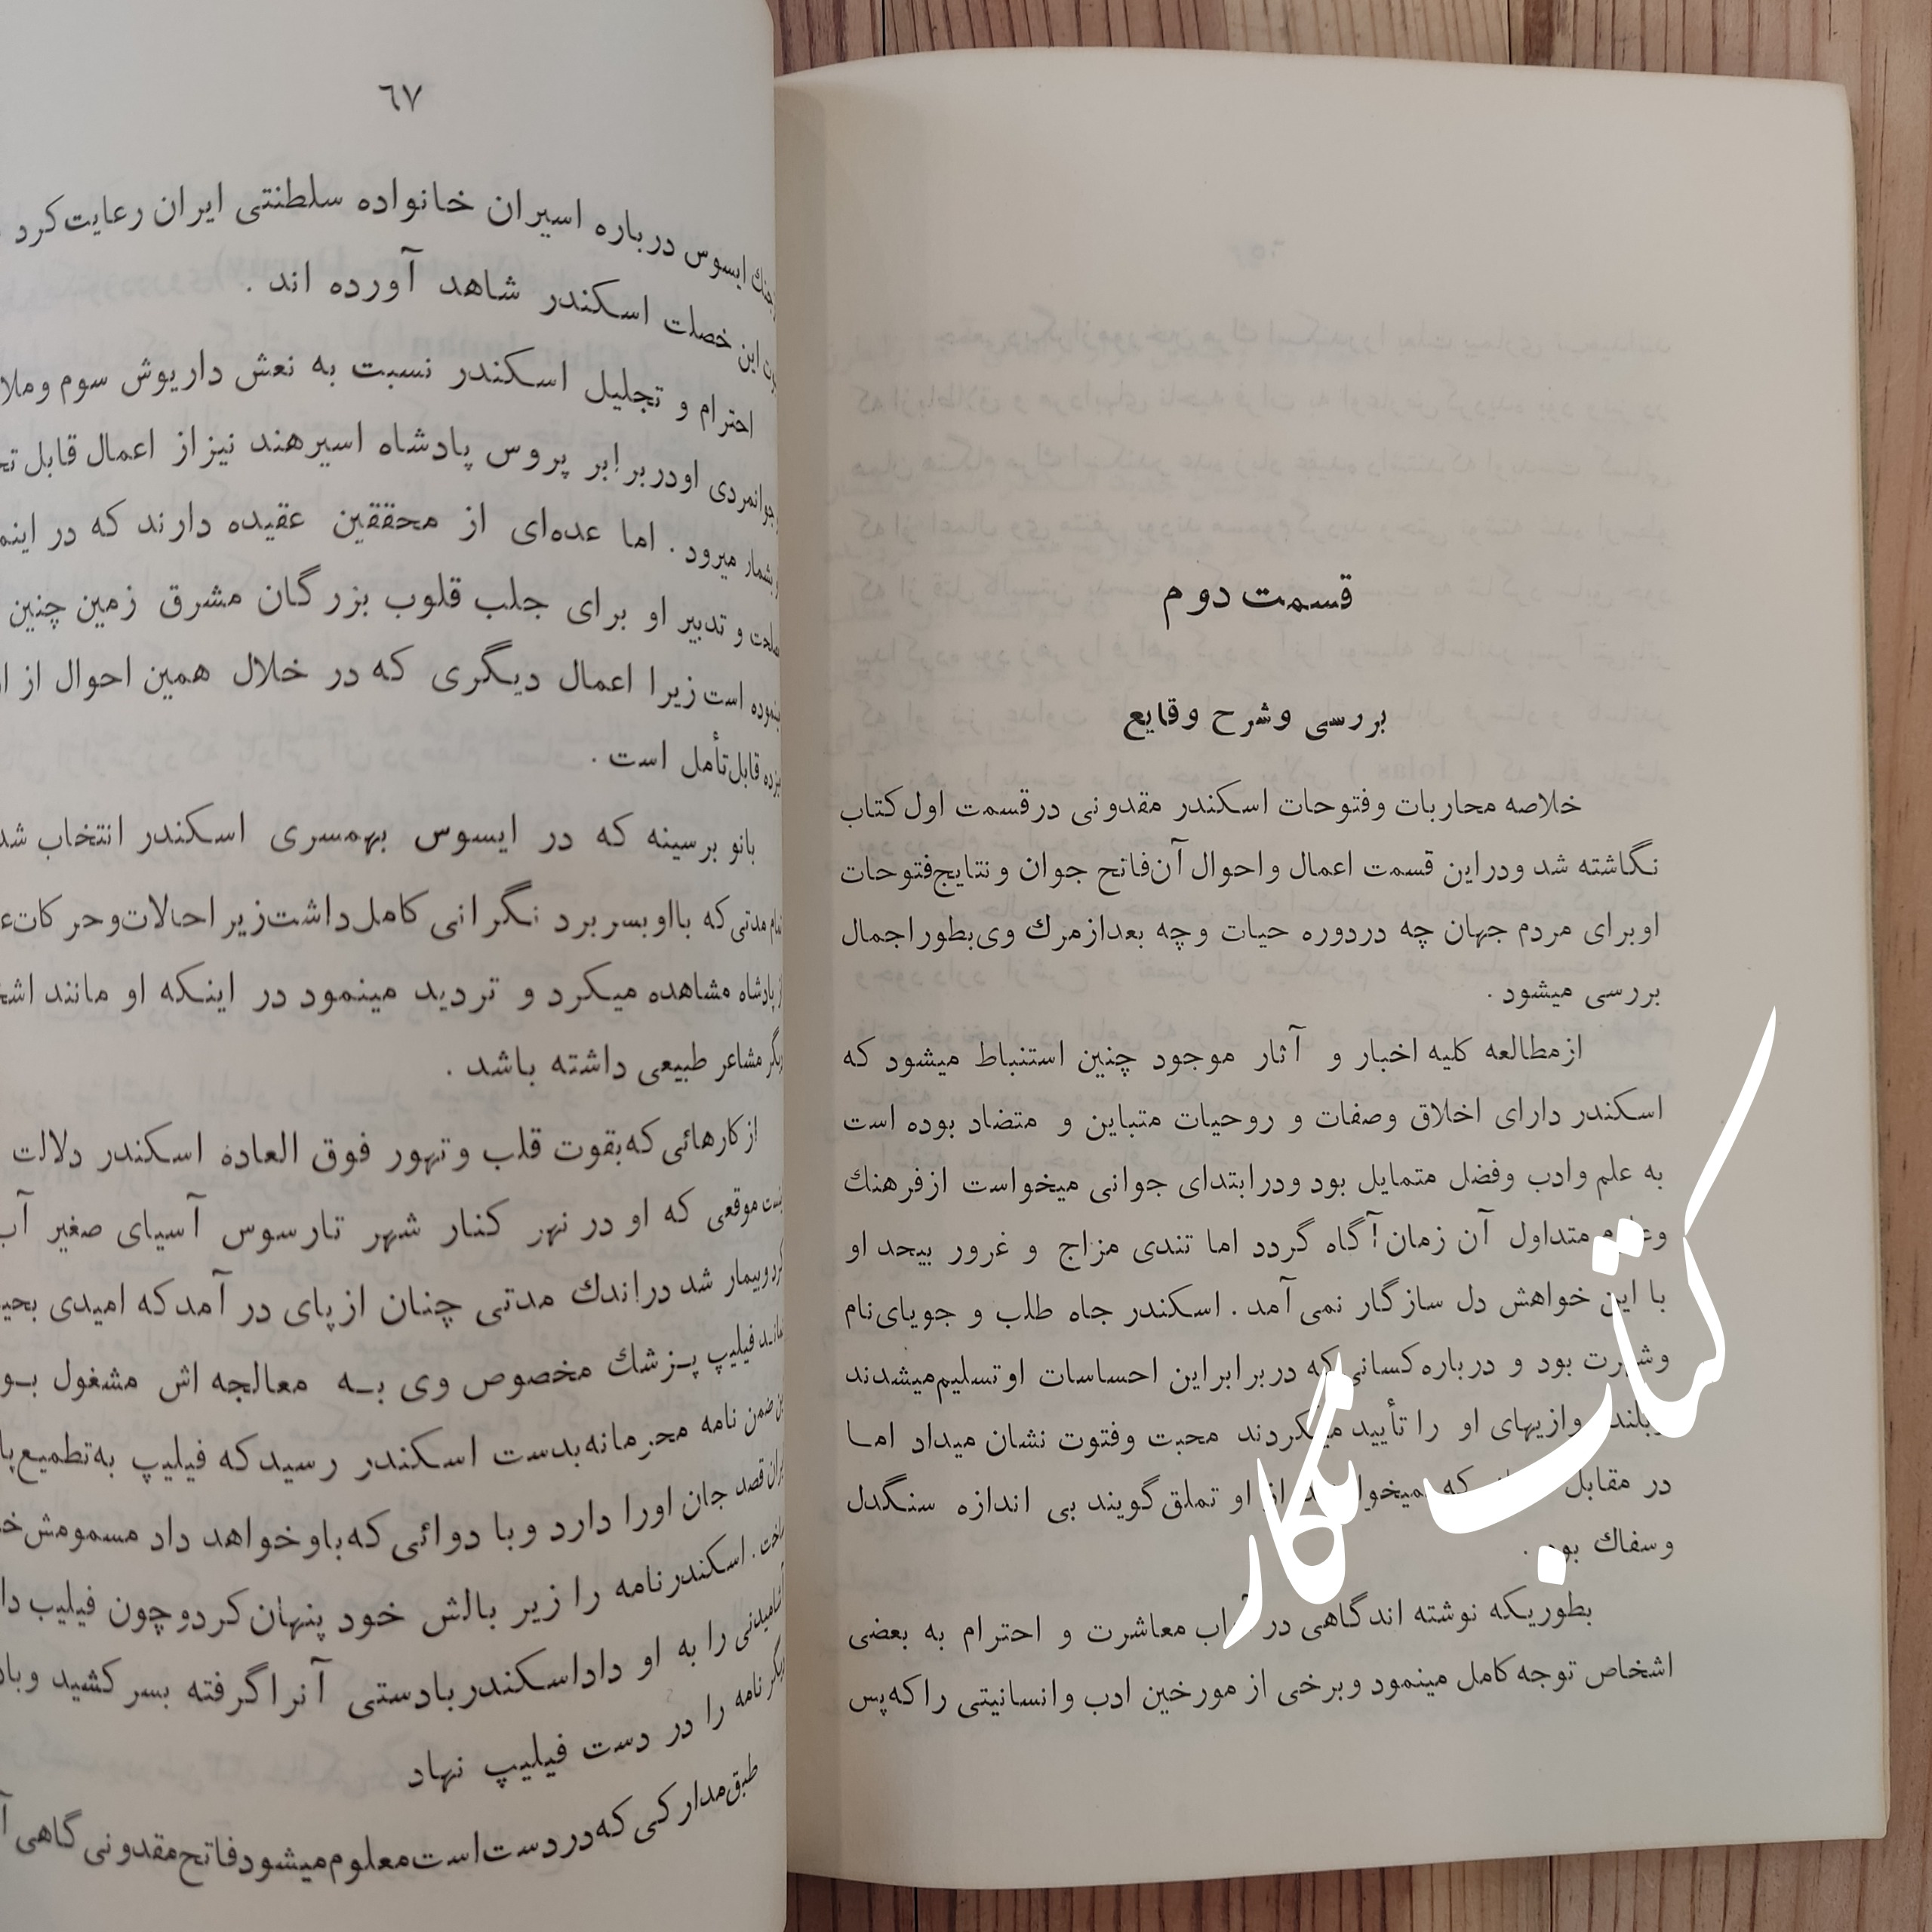 قسمت دوم
بررسی و شرح وقایع
خلاصه محاربات و فتوحات اسکندر مقدونی در قسمت اول کتاب
نگاشته شد و در این قسمت اعمال و احوال آن فاتح جوان و نتایج فتوحات
او برای مردم جهان چه در دوره حیات و چه بعد از مرك وی بطور اجمال
بررسی میشود .
از مطالعه کلیه اخبار و آثار موجود چنین استنباط میشود که
اسکندر دارای اخلاق و صفات و روحیات متباین و متضاد بوده است
به علم و ادب و فضل متمایل بود و در ابتدای جوانی میخواست از فرهنك
متداول آن زمان آگاه گردد اما تندی مزاج و غرور بیحد او
با این خواهش دل سازگار نمی آمد . اسکندر جاه طلب و جویای نام
و شهرت بود و درباره کسانی که در برابر این احساسات او تسلیم میشدند
را تأیید میکردند محبت و فتوت نشان میداد اما
در مقابل که از او تملق گویند بی اندازه سنگدل
و سفاك بود .
بطوریکه نوشته اند گاهی در معاشرت و احترام به بعضی
اشخاص توجه کامل مینمود و برخی از مورخین ادب و انسانیتی را که پس
کتاب نگار
٦٧
ایسوس درباره اسیران خانواده سلطنتی ایران رعایت کرد
این خصلت اسکندر شاهد آورده اند .
احترام و تجلیل اسکندر نسبت به نعش داریوش سوم و
جوانمردی او در برابر پروس پادشاه اسیر هند نیز از اعمال قابل
بشمار میرود . اما عده‌ای از محققین عقیده دارند که در
و تدبیر او برای جلب قلوب بزرگان مشرق زمین چنین
است زیرا اعمال دیگری که در خلال همین احوال از
قابل تأمل است .
بانو برسینه که در ایسوس بهمسری اسکندر انتخاب
مدتی که با او بسر برد نگرانی کامل داشت زیرا حالات و حرکات
پادشاه مشاهده میکرد و تردید مینمود در اینکه او مانند
مشاعر طبیعی داشته باشد .
از کارهائی که بقوت قلب و تهور فوق العاده اسکندر دلالت
موقعی که او در نهر کنار شهر تارسوس آسیای صغیر
و بیمار شد در اندك مدتی چنان از پای در آمد که امیدی
فیلیپ پزشك مخصوص وی به معالجه اش مشغول
ضمن نامه محرمانه بدست اسکندر رسید که فیلیپ به تطمیع
قصد جان او را دارد و با دوائی که باو خواهد داد مسمومش
. اسکندر نامه را زیر بالش خود پنهان کرد و چون فیلیپ
را به او داد اسکندر با دستی آنرا گرفته بسر کشید و
نامه را در دست فیلیپ نهاد
طبق مدارکی که در دست است معلوم میشود فاتح مقدونی گاهی